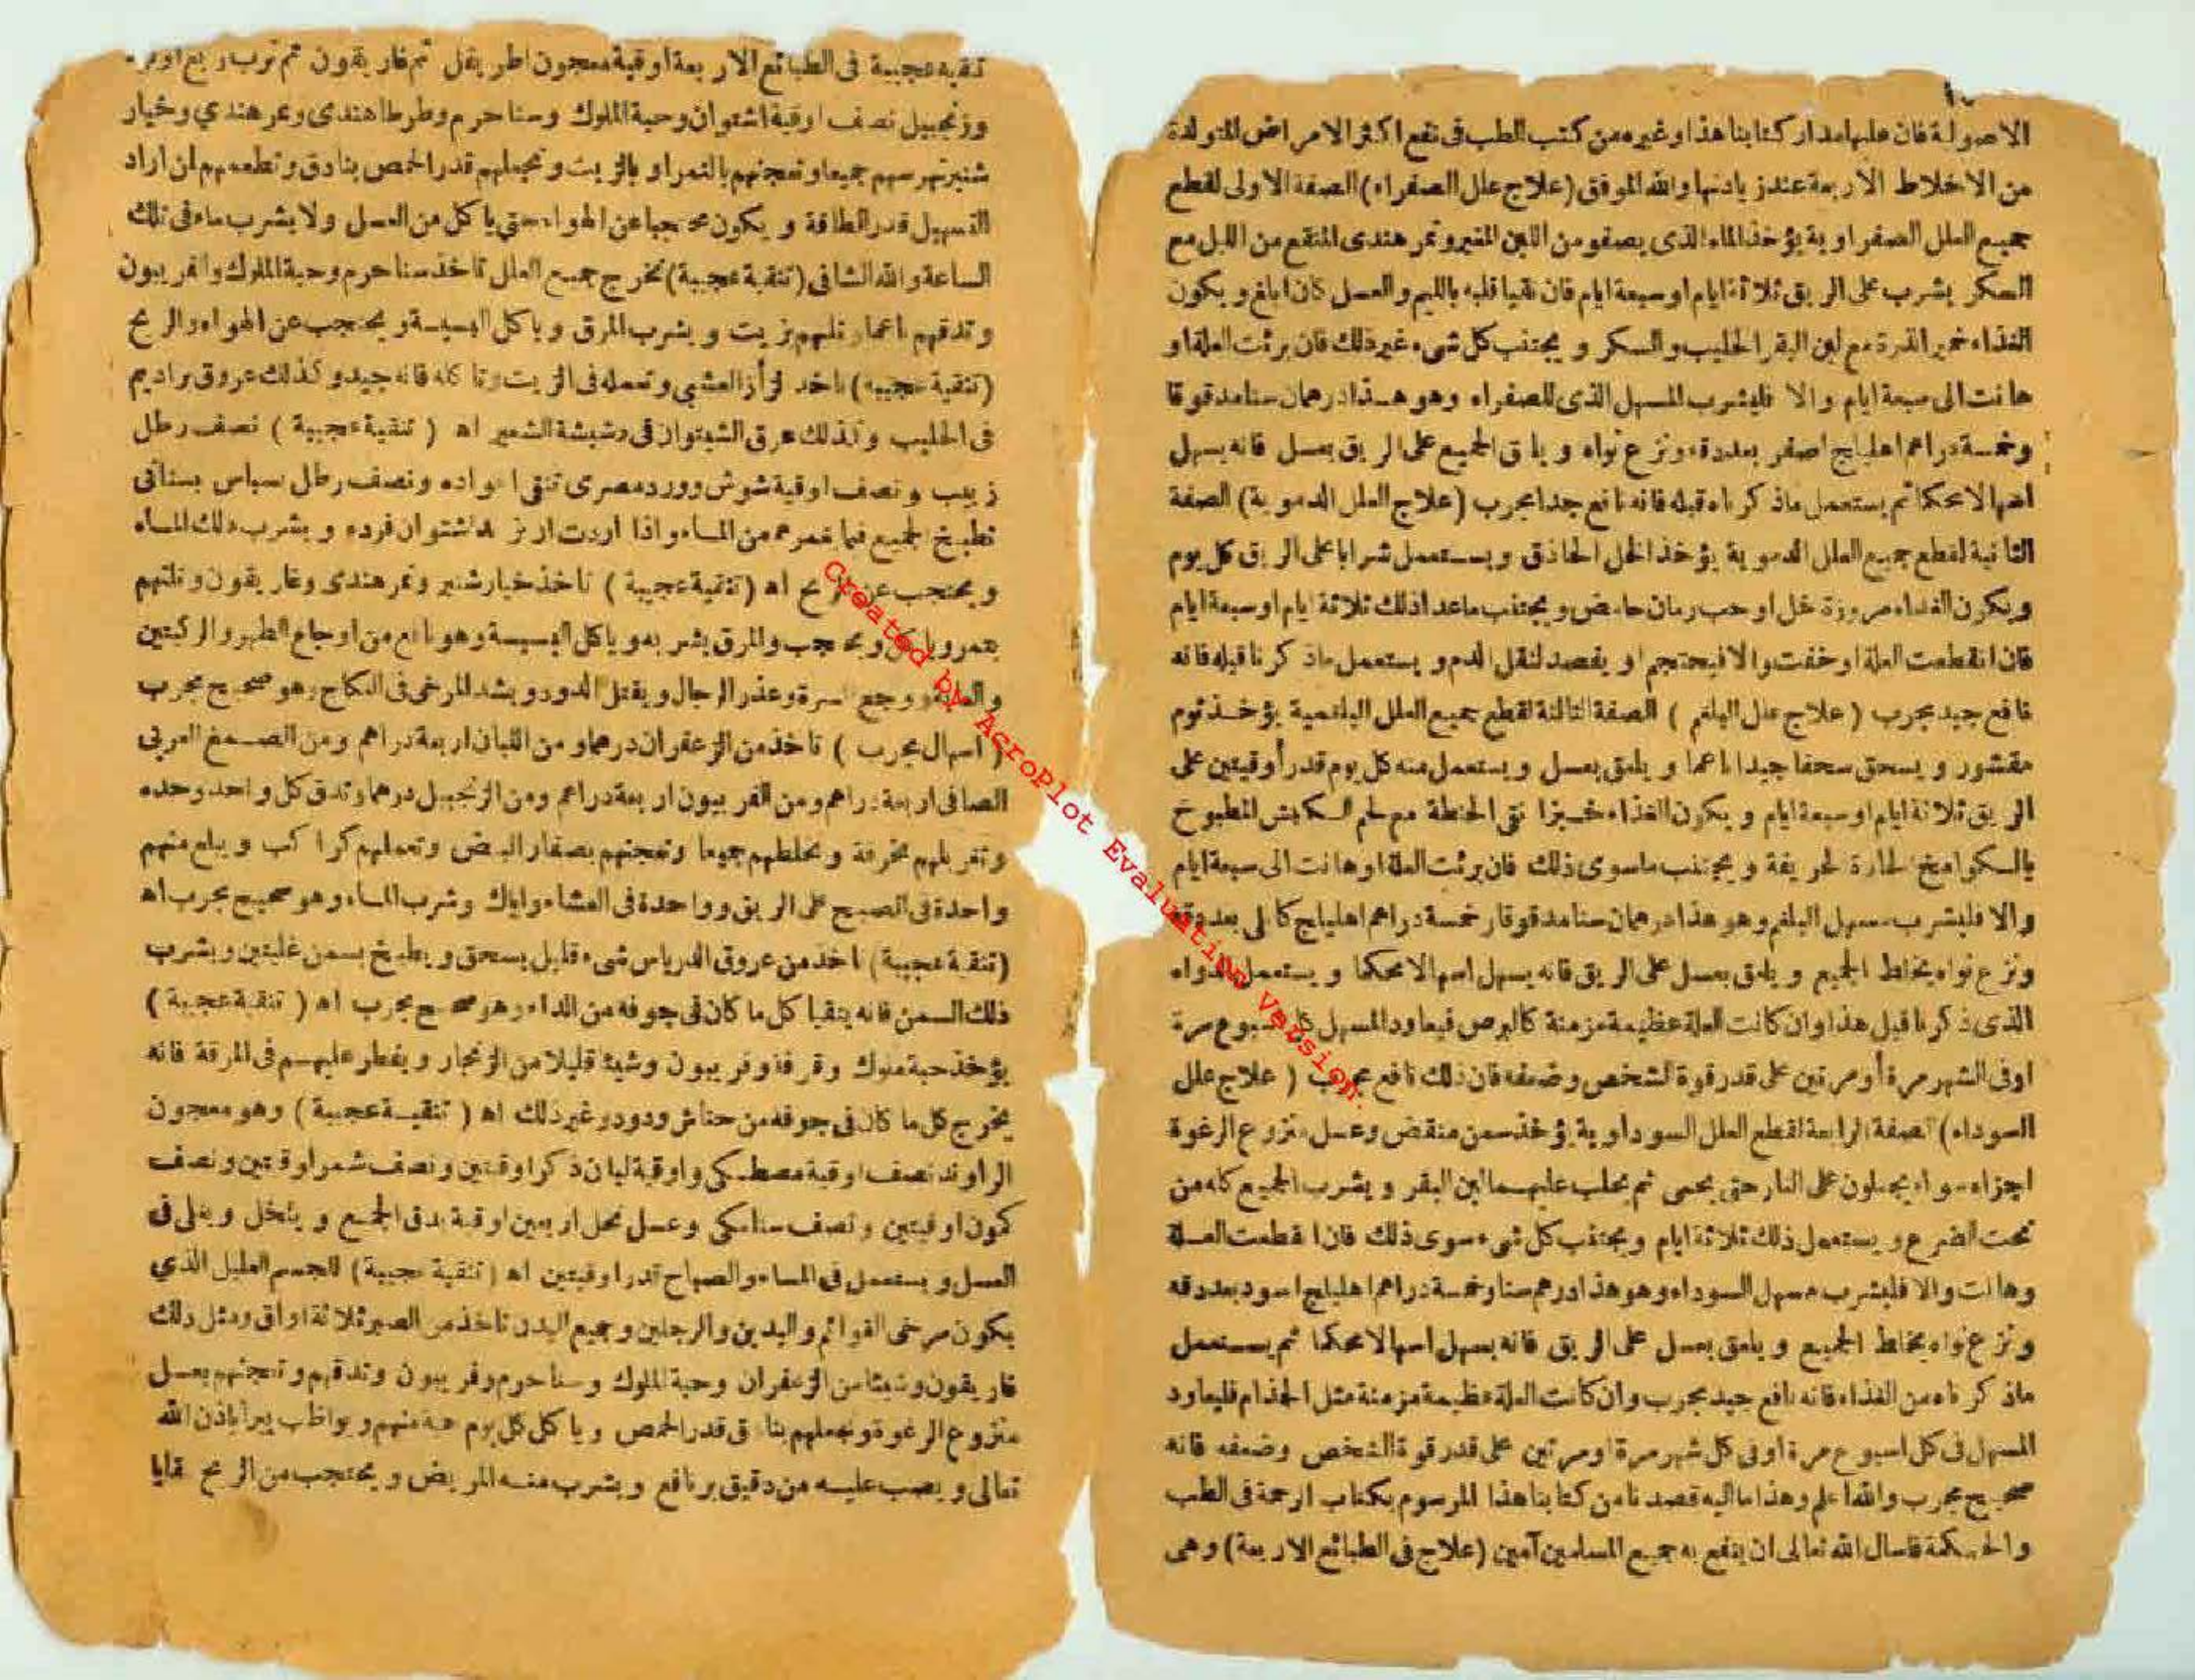 الاصولة فان عليها مدار كتابنا هذا وغيره من كتب الطب فى نفع اكثر الامراض المتولدة
من الاخلاط الاربعة عند زيادتها والله الموفق (علاج علل الصفراء) الصفة الاولى لقطع
جميع العلل الصفراوية يؤخذ الماء الذى يصفو من اللبن المغير وتمر هندى المنقع من الليل مع
السكر يشرب على الريق ثلاثة ايام او سبعة ايام فان تقيا قلبه بالليم والعسل كان ابلغ ويكون
الغذاء خمير الذرة مع لبن البقر الحليب والسكر ويجتنب كل شىء غير ذلك فان برئت العلة او
هانت الى سبعة ايام والا فليشرب المسهل الذى للصفراء وهو هذا درهمان سنا مدقوقا
وخمسة دراهم اهليلج اصفر بعد دقه ونزع نواه ويلق الجميع على الريق بعسل فانه يسهل
اسهالا محكما ثم يستعمل ما ذكرناه قبله فانه نافع جدا مجرب (علاج العلل الدموية) الصفة
الثانية لقطع جميع العلل الدموية يؤخذ الخل الحاذق ويستعمل شرابا على الريق كل يوم
ويكون الغداء مزورة خل او حب رمان حامض ويجتنب ما عدا ذلك ثلاثة ايام او سبعة ايام
فان انقطعت العلة او خفت والا فيحتجم او يفصد لثقل الدم و يستعمل ما ذكرنا قبله فانه
نافع جيد مجرب (علاج علل البلغم) الصفة الثالثة لقطع جميع العلل البلغمية يؤخذ ثوم
مقشور ويسحق سحقا جيدا ناعما ويلعق بعسل ويستعمل منه كل يوم قدر أوقيتين على
الريق ثلاثة ايام او سبعة ايام ويكون الغذاء خبزا نقى الحنطة مع لحم الكبش المطبوخ
بالسكوامخ الحارة الحريفة ويجتنب ما سوى ذلك فان برئت العلة او هانت الى سبعة ايام
والا فليشرب مسهل البلغم وهو هذا درهمان سنا مدقوقا وخمسة دراهم اهليلج كابلى بعد دقه
ونزع نواه يخلط الجميع ويلعق بعسل على الريق فانه يسهل اسهالا محكما ويستعمل الدواء
الذى ذكرنا قبل هذا وان كانت العلة عظيمة مزمنة كالبرص فيعاود المسهل كل اسبوع مرة
اوفى الشهر مرة أو مرتين على قدر قوة الشخص وضعفه فان ذلك نافع مجرب (علاج علل
السوداء) الصفة الرابعة لقطع العلل السوداوية يؤخذ سمن منقض وعسل منزوع الرغوة
اجزاء سواء يجعلون على النار حتى يحمى ثم يحلب عليهما لبن البقر ويشرب الجميع كله من
تحت الضرع ويستعمل ذلك ثلاثة ايام ويجتنب كل شىء سوى ذلك فان انقطعت العلة
وهانت والا فليشرب مسهل السوداء وهو هذا درهم سنا وخمسة دراهم اهليلج اسود بعد دقه
ونزع نواه يخلط الجميع ويلعق بعسل على الريق فانه يسهل اسهالا محكما ثم يستعمل
ما ذكرناه من الغذاء فانه نافع جيد مجرب وان كانت العلة عظيمة مزمنة مثل الجذام فليعاود
المسهل فى كل اسبوع مرة اوفى كل شهر مرة او مرتين على قدر قوة الشخص وضعفه فانه
صحيح مجرب والله اعلم وهذا ما اليه قصدنا من كتابنا هذا المرسوم بكتاب الرحمة فى الطب
والحكمة فاسال الله تعالى ان ينفع به جميع المسلمين آمين (علاج فى الطبائع الاربعة) وهى
تنقية عجيبة فى الطبائع الاربعة اوقية معجون اطريفل ثم غاريقون ثم ترب ربع
وزنجبيل نصف اوقية اشتوان وحبة الملوك وسنا حرم وطرطا هندى وتمر هندي وخيار
شنبر تهرسهم جميعا وتعجنهم بالتمر او بالزيت وتجعلهم قدر الحمص بنادق وتطعمهم ان اراد
التسهيل قدر الطاقة ويكون محجبا عن الهواء حتى ياكل من العسل ولا يشرب ماء فى تلك
الساعة والله الشافى (تنقية عجيبة) تخرج جميع العلل تاخذ سنا حرم وحبة الملوك وافربيون
وتدقهم ناعما وتلتهم بزيت ويشرب المرق وياكل البسيسة ويحتجب عن الهواء والريح
(تنقية عجيبة) تاخذ العشبي وتعمله فى الزيت وتاكله فانه جيد وكذلك عروق براديم
فى الحليب وكذلك عرق الشيتوان فى دشيشة الشعير اه (تنقية عجيبة) نصف رطل
زبيب ونصف اوقية شوش وورد مصرى تنقى اعواده ونصف رطل سباس بستانى
تطبخ الجميع فيما غمرهم من الماء واذا اردت اشتوان فرده ويشرب ذلك الماء
ويحتجب عن الريح اه (تنقية عجيبة) تاخذ خيار شنبر وتمر هندى وغاريقون وتلتهم
بتمر وياكل ويحتجب والمرق يشربه وياكل البسيسة وهو نافع من اوجاع الظهر والركبتين
ووجع السرة وعذر الرجال ويقتل الدود ويشد المرخى فى النكاح وهو صحيح مجرب
(اسهال مجرب) تاخذ من الزعفران درهما ومن اللبان اربعة دراهم ومن الصمغ العربى
الصافى اربعة دراهم ومن الفربيون اربعة دراهم ومن الزنجبيل درهما وتدق كل واحد وحده
وتغربلهم بخرقة وتخلطهم جميعا وتعجنهم بصفار البيض وتعملهم كراكب ويبلع منهم
واحدة فى الصبح على الريق وواحدة فى العشاء واياك وشرب الماء وهو صحيح مجرب اه
(تنقية عجيبة) تاخذ من عروق الدرياس شىء قليل يسحق ويطبخ بسمن غليتين ويشرب
ذلك السمن فانه ينقيا كل ما كان فى جوفه من الداء وهو صحيح مجرب اه (تنقية عجيبة)
يؤخذ حبة ملوك وقرفة وفربيون وشيئا قليلا من الزنجار ويفطر عليهم فى المرقة فانه
يخرج كل ما كان فى جوفه من حناش ودود وغير ذلك اه (تنقية عجيبة) وهو معجون
الراوند نصف اوقية مصطكى واوقية لبان ذكر اوقيتين ونصف شمر اوقيتين ونصف
كمون اوقيتين ونصف سنامكى وعسل نحل اربعين اوقية يدق الجميع وينخل ويغلى فى
العسل ويستعمل فى المساء والصباح قدر اوقيتين اه (تنقية عجيبة) للجسم العليل الذي
يكون مرخى القوائم واليدين والرجلين وجميع البدن تاخذ من الصبر ثلاثة اواق ومثل ذلك
غاريقون وشيئا من الزعفران وحبة الملوك وسنا حرم وفربيون وتدقهم وتعجنهم بعسل
منزوع الرغوة وتجعلهم بنادق قدر الحمص وياكل كل يوم حبة منهم ويواظب يبرأ باذن الله
تعالى ويصب عليه من دقيق بر نافع ويشرب منه المريض ويحتجب من الريح
Created by AcroPlot Evaluation Version.